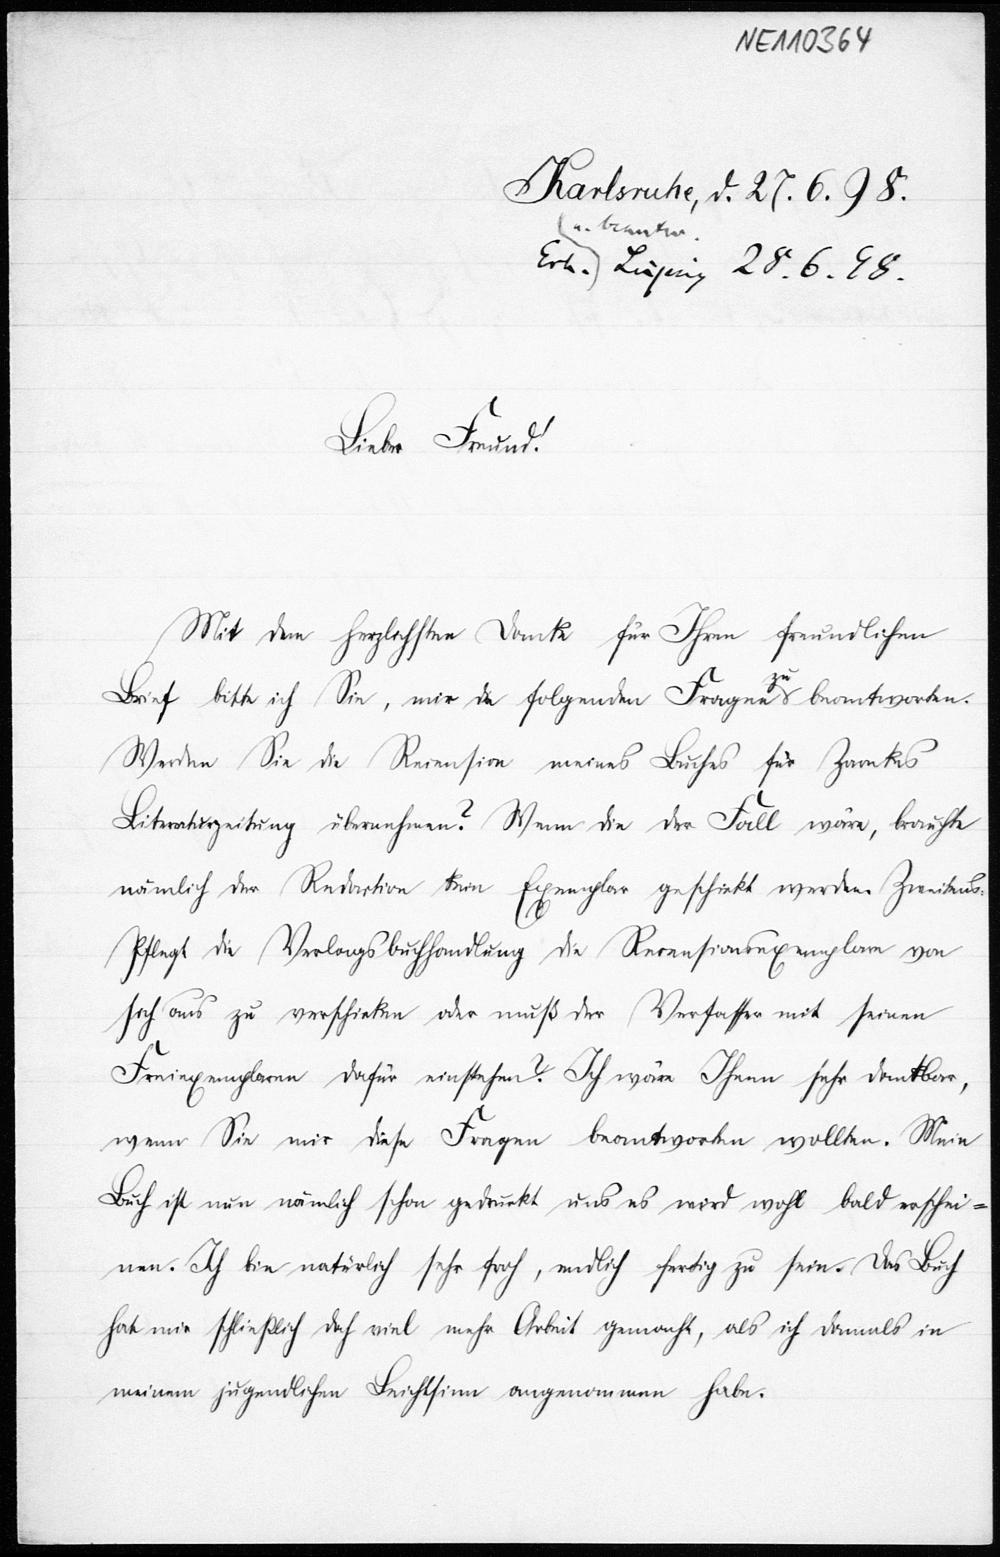 NE110364
Karlsruhe, d. 27.6.98.
u. beantw.
Erh. Leipzig 28.6.98.
Lieber Freund!
Mit dem herzlichsten Danke für Ihren freundlichen
Brief bitte ich Sie, mir die folgenden Fragen zu beantworten.
Werden Sie die Recension meines Buches für Zarnkes
Literaturzeitung übernehmen? Wenn dies der Fall wäre, brauchte
nämlich der Redaction kein Exemplar geschickt werden. Zweitens:
Pflegt die Verlagsbuchhandlung die Recensionsexemplare von
sich aus zu verschicken oder muß der Verfasser mit seinen
Freiexemplaren dafür einstehen? Ich wäre Ihnen sehr dankbar,
wenn Sie mir diese Fragen beantworten wollten. Mein
Buch ist nun nämlich schon gedruckt uns es wird wohl bald erschei=
nen. Ich bin natürlich sehr froh, endlich fertig zu sein. Das Buch
hat mir schließlich doch viel mehr Arbeit gemacht, als ich damals in
meinem jugendlichen Leichtsinn angenommen habe.